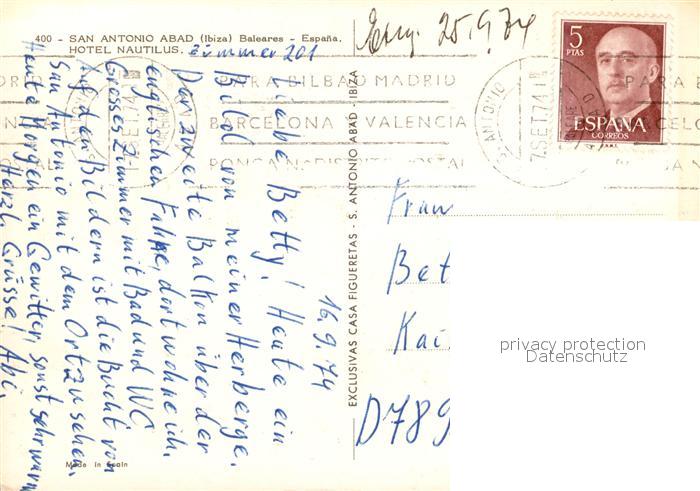 400 - SAN ANTONIO ABAD (Ibiza) Baleares - España.
HOTEL NAUTILUS. Zimmer 201
Emp. 25.9.74
5
PTAS
ESPAÑA
CORREOS
PARA BILBAO MADRID
BARCELONA VALENCIA
PONGA N DISTRITO POSTAL
S. ANTONIO
7 SET 74
16.9.74
Liebe Betty! Heute ein
Bild von meiner Herberge.
Der zweite Balkon über der
englischen Fahne, dort wohne ich.
Grosses Zimmer mit Bad und WC.
Auf den Bildern ist die Bucht von
San Antonio mit dem Ort zu sehen.
Heute Morgen ein Gewitter, sonst sehr warm
Herzl. Grüsse! Abi.
EXCLUSIVAS CASA FIGUERETAS - S. ANTONIO ABAD - IBIZA
Frau
Bet
Kai
D789
privacy protection
Datenschutz
Made in Spain